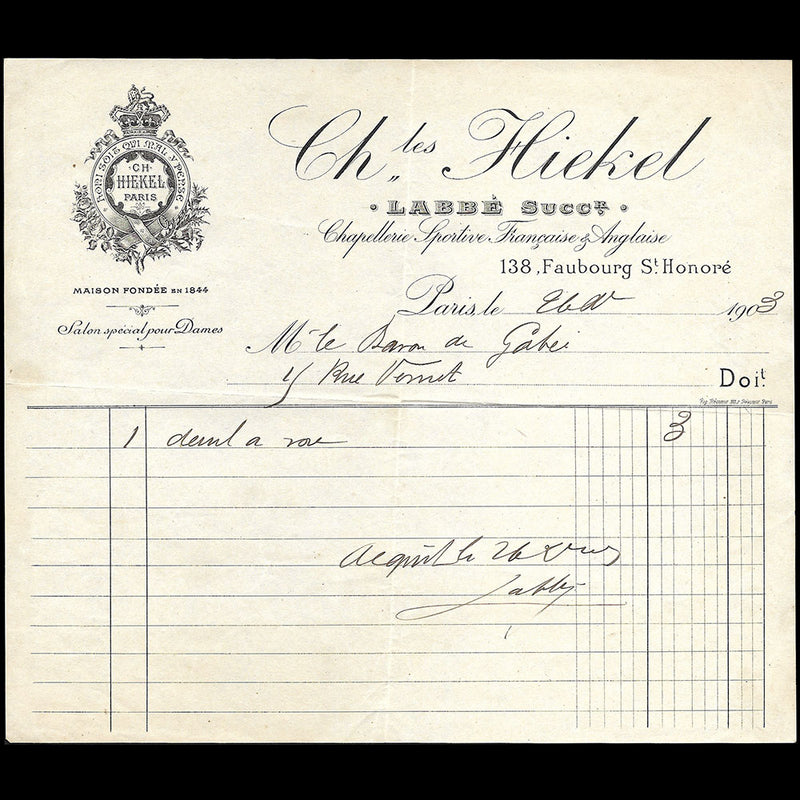 HONI SOIT QUI MAL Y PENSE
CH
HIEKEL
PARIS
MAISON FONDÉE EN 1844
Salon spécial pour Dames
Ch„les Hiekel
LABBÉ SUCCR.
Chapellerie Sportive Française & Anglaise
138, Faubourg St. Honoré
Paris, le 26 1903
Mr le Baron de
Rue Vernet
Doit.
1 deuil a 3
Acquit le 26
Labbé